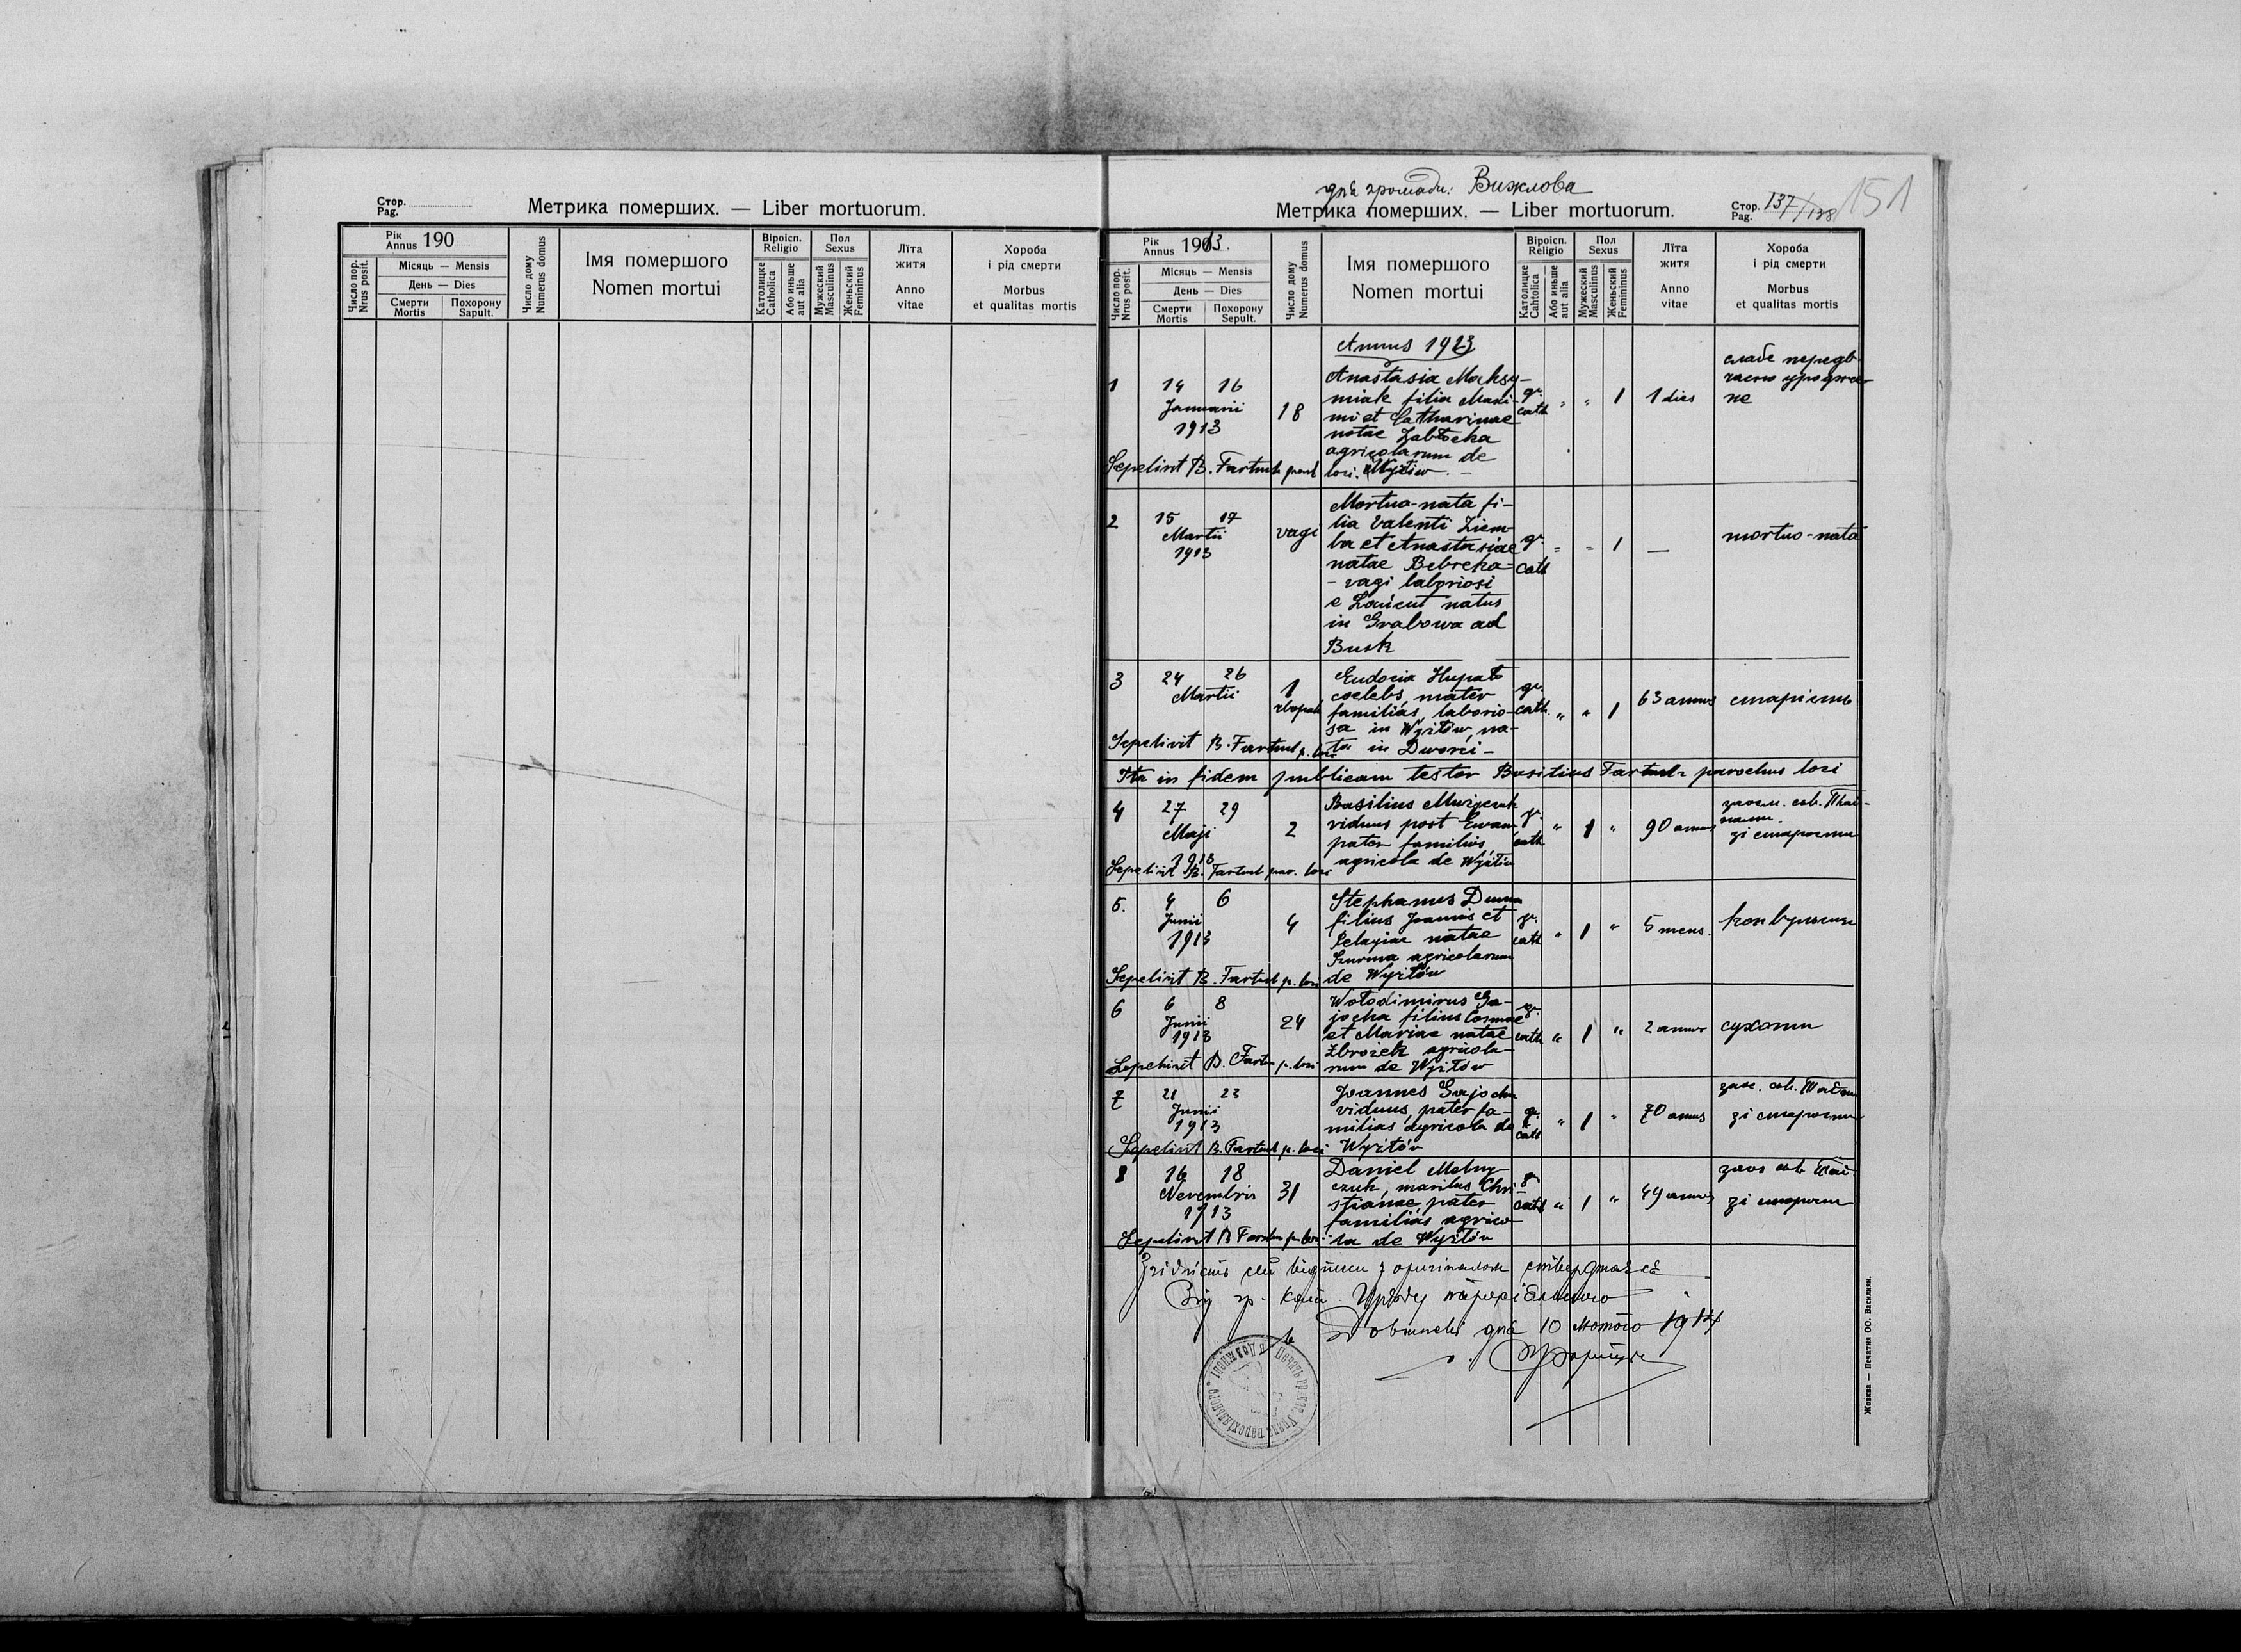 Стор.
Pag.
Метрика померших. — Liber mortuorum.
Рік
Annus 190
Число пор.
Nrus posit.
Місяць — Mensis
День — Dies
Смерти
Mortis
Похорону
Sapult.
Число дому
Numerus domus
Імя помершого
Nomen mortui
Віроісп.
Religio
Католицке
Catholica
Або иньше
aut alia
Пол
Sexus
Мужеский
Masculinus
Женьский
Femininus
Лїта
житя
Anno
vitae
Хороба
і рід смерти
Morbus
et qualitas mortis
для громади: Вижлова
Метрика померших. — Liber mortuorum.
Стор.
Pag. 137/138
151
Рік
Annus 1913.
Число пор.
Nrus posit.
Місяць — Mensis
День — Dies
Смерти
Mortis
Похорону
Sepult.
Число дому
Numerus domus
Імя помершого
Nomen mortui
Віроісп.
Religio
Католицке
Cahtolica
Або иньше
aut alia
Пол
Sexus
Мужеский
Masculinus
Женьский
Femininus
Лїта
житя
Anno
vitae
Хороба
і рід смерти
Morbus
et qualitas mortis
Annus 1913
1 14 16
Januarii
1913
18
Anastasia Maksy-
miak filia Maxi-
mi et Catharinae
natae Zabłocka
agricolarum de
gr.
cath. " " 1 1 dies
слабе передв-
часно уроджен-
не
Sepelivit B. Fartuch paroch loci. Wyżłów. —
2 15 17
Martii
1913
vagi
Mortuo-nata fi-
lia Valenti Ziem-
ba et Anastasiae
natae Bebreka
- vagi laboriosi
e Łańcut natus
in Grabowa ad
Busk
gr.
cath " " 1 —
mortuo-nata
3 24 26
Martii
1
Eudocia Hupało
coelebs, mater
familias laborio-
sa in Wyżłów, na-
ta in Dworci -
gr.
cath. " " 1 63 annus старість
Sepelivit B. Fartuch p. loci
Ita in fidem publicam testor Basilius Fartuch parochus loci
4 27 29
Maji
1913
2
Basilius
viduus post Ewam,
pater familias,
agricola de Wyżłów
gr.
cath " 1 " 90 annus
заосм. св. Тай-
нами.
зі старости
Sepelivit B. Fartuch par. loci
5. 4 6
Junii
1913
4
Stephanus Duma
filius Joannis et
Pelagiae natae
Szurma agricolarum
de Wyżłów
gr.
cath " 1 " 5 mens.
конвульсии
Sepelivit B. Fartuch p. loci
6 6 8
Junii
1913
24
Wołodimirus Ga-
jocha filius Cosmae
et Mariae natae
Zbrożek agricola-
rum de Wyżłów
gr.
cath " 1 " 2 annus сухоти
Sepelivit B. Fartuch p. loci
7 21 23
Junii
1913
Joannes Gajocha
viduus, pater fa-
milias agricola de
Wyżłów
gr.
cath " 1 " 70 annus
заос. св. Тайн.
зі старости
Sepelivit B. Fartuch p. loci
8 16 18
Novembris
1913
31
Daniel
czuk, maritus Chri-
stianae pater
familias agrico-
la de Wyżłów
gr.
cath " 1 " 49 annus
заос св. Тай.
зі старости
Sepelivit B Fartuch p. loci
Згідність сеї відписи з оригіналом стверджаєся
Від гр. кат. Уряду парохіального
в дня 10 Лютого 1914
Жовква — Печатня ОО. Василиян.